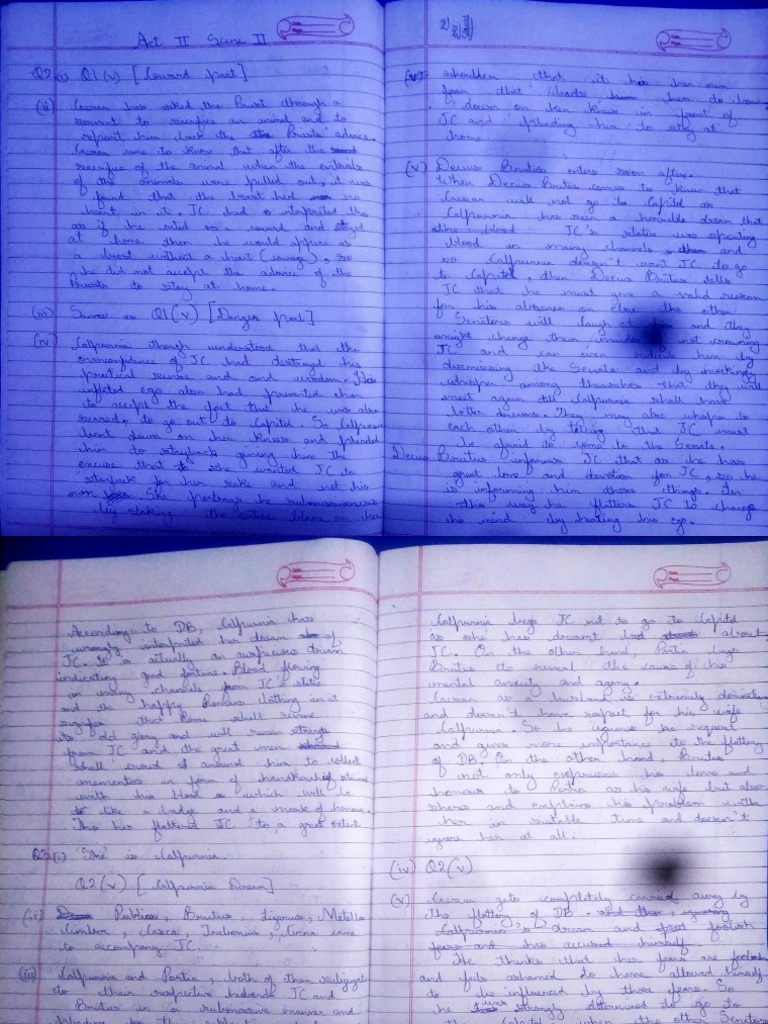 Act II Scene II
Q2 (i) Q1 (v) [Coward part]
(ii) Caesar has asked the Priest through a
servant to sacrifice an animal and to
report him back the Priests' advice.
Caesar came to know that after the
sacrifice of the animal when the entrails
of the animals were pulled out, it was
found that the beast had no
heart in it. JC had interpreted this
as if he acted as a coward and stayed
at home then he would appear as
a beast without a heart (courage), so
he did not accept the advice of the
Priests to stay at home.
(iii) Same as Q1 (v) [Danger part]
(iv) Calpurnia though understood that the
overconfidence of JC had destroyed his
practical sense and wisdom. His
inflated ego also had prevented him
to accept the fact that he was also
scared to go out to Capitol. So Calpurnia
bent down on her knees and pleaded
him to stayback giving him the
excuse that she wanted JC to
stayback for her sake and not his
own. She portrays her submissiveness
by taking the entire blame on her
shoulder that it is her own
fear that leads her to
down on her knees in front of
JC and pleading him to stay at
home.
(v) Decius Brutus enters soon after.
When Decius Brutus comes to know that
Caesar will not go to Capitol as
Calpurnia has seen a horrible dream that
the blood JC's statue was spouting
blood in many channels and
so Calpurnia doesn't want JC to go
to Capitol, then Decius Brutus tells
JC that he must give a valid reason
for his absence or else the other
Senators will laugh at and they
might change their minds of not crowning
JC and can even him by
dismissing the Senate and by mockingly
whisper among themselves that they will
meet again till Calpurnia shall have
better dreams. They may also whisper to
each other by telling that JC must
be afraid to come to the Senate.
Decius Brutus informs JC that as he has
great love and devotion for JC, so he
is informing him these things. In
this way he flatters JC to change
his mind by hurting his ego.
According to DB, Calpurnia has
wrongly interpreted her dream of
JC. It is actually an auspicious dream
indicating good fortune. Blood flowing
in many channels from JC's statue
and the happy Romans bathing in it
signifies that Rome shall revive
its old glory and will receive strength
from JC and the great men
shall crowd around him to collect
mementoes in form of handkerchief stained
with his blood which will be
like a badge and a mark of honour.
This has flattered JC to a great extent
Q3 (i) 'She' is Calpurnia.
Q2 (v) [Calpurnia Dream]
(ii) Publius, Brutus, Ligarius, Metellus
Cimber, Casca, Trebonius, Cinna came
to accompany JC.
(iii) Calpurnia and Portia, both of them subjugate
to their respective husbands JC and
Brutus in a submissive manner and
Calpurnia begs JC not to go to Capitol
as she has dreamt bad about
JC. On the other hand, Portia begs
Brutus to reveal the cause of his
mental anxiety and agony.
Caesar as a husband is extremely
and doesn't have respect for his wife
Calpurnia. So he ignores her request
and gives more importance to the flattery
of DB. On the other hand, Brutus
not only expresses his love and
honour to Portia as his wife but also
shares and explains his problem with
her in suitable time and doesn't
ignore her at all.
(iv) Q2 (v)
(v) Caesar gets completely carried away by
the flattery of DB. ignoring
Calpurnia's dream and foolish
fears and has accused himself.
He thinks that her fears are foolish
and feels ashamed to have allowed himself
to be influenced by those fears. So
he was strongly determined to go to
the Capitol when the other Senators